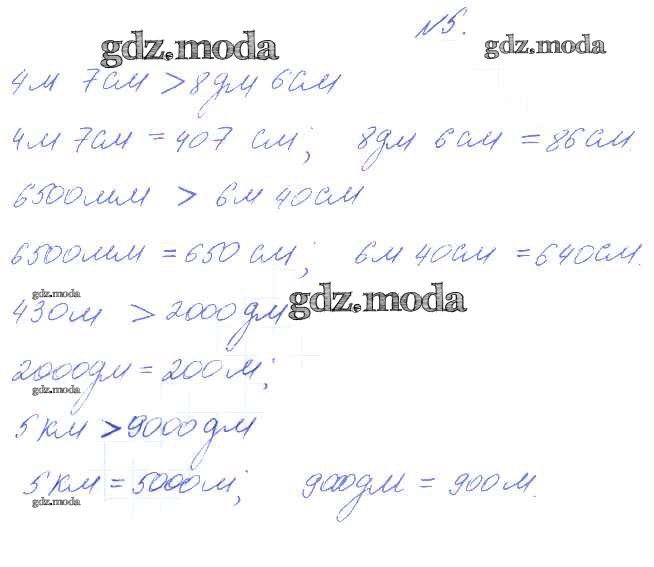 №5.
gdz.moda gdz.moda
4м 7см > 8дм 6см
4м 7см = 407 см; 8дм 6см = 86см.
6500мм > 6м 40см
6500мм = 650 см; 6м 40см = 640см.
gdz.moda gdz.moda
430м > 2000дм
2000дм = 200м;
gdz.moda
5 км > 9000дм
5 км = 5000м; 9000дм = 900м.
gdz.moda